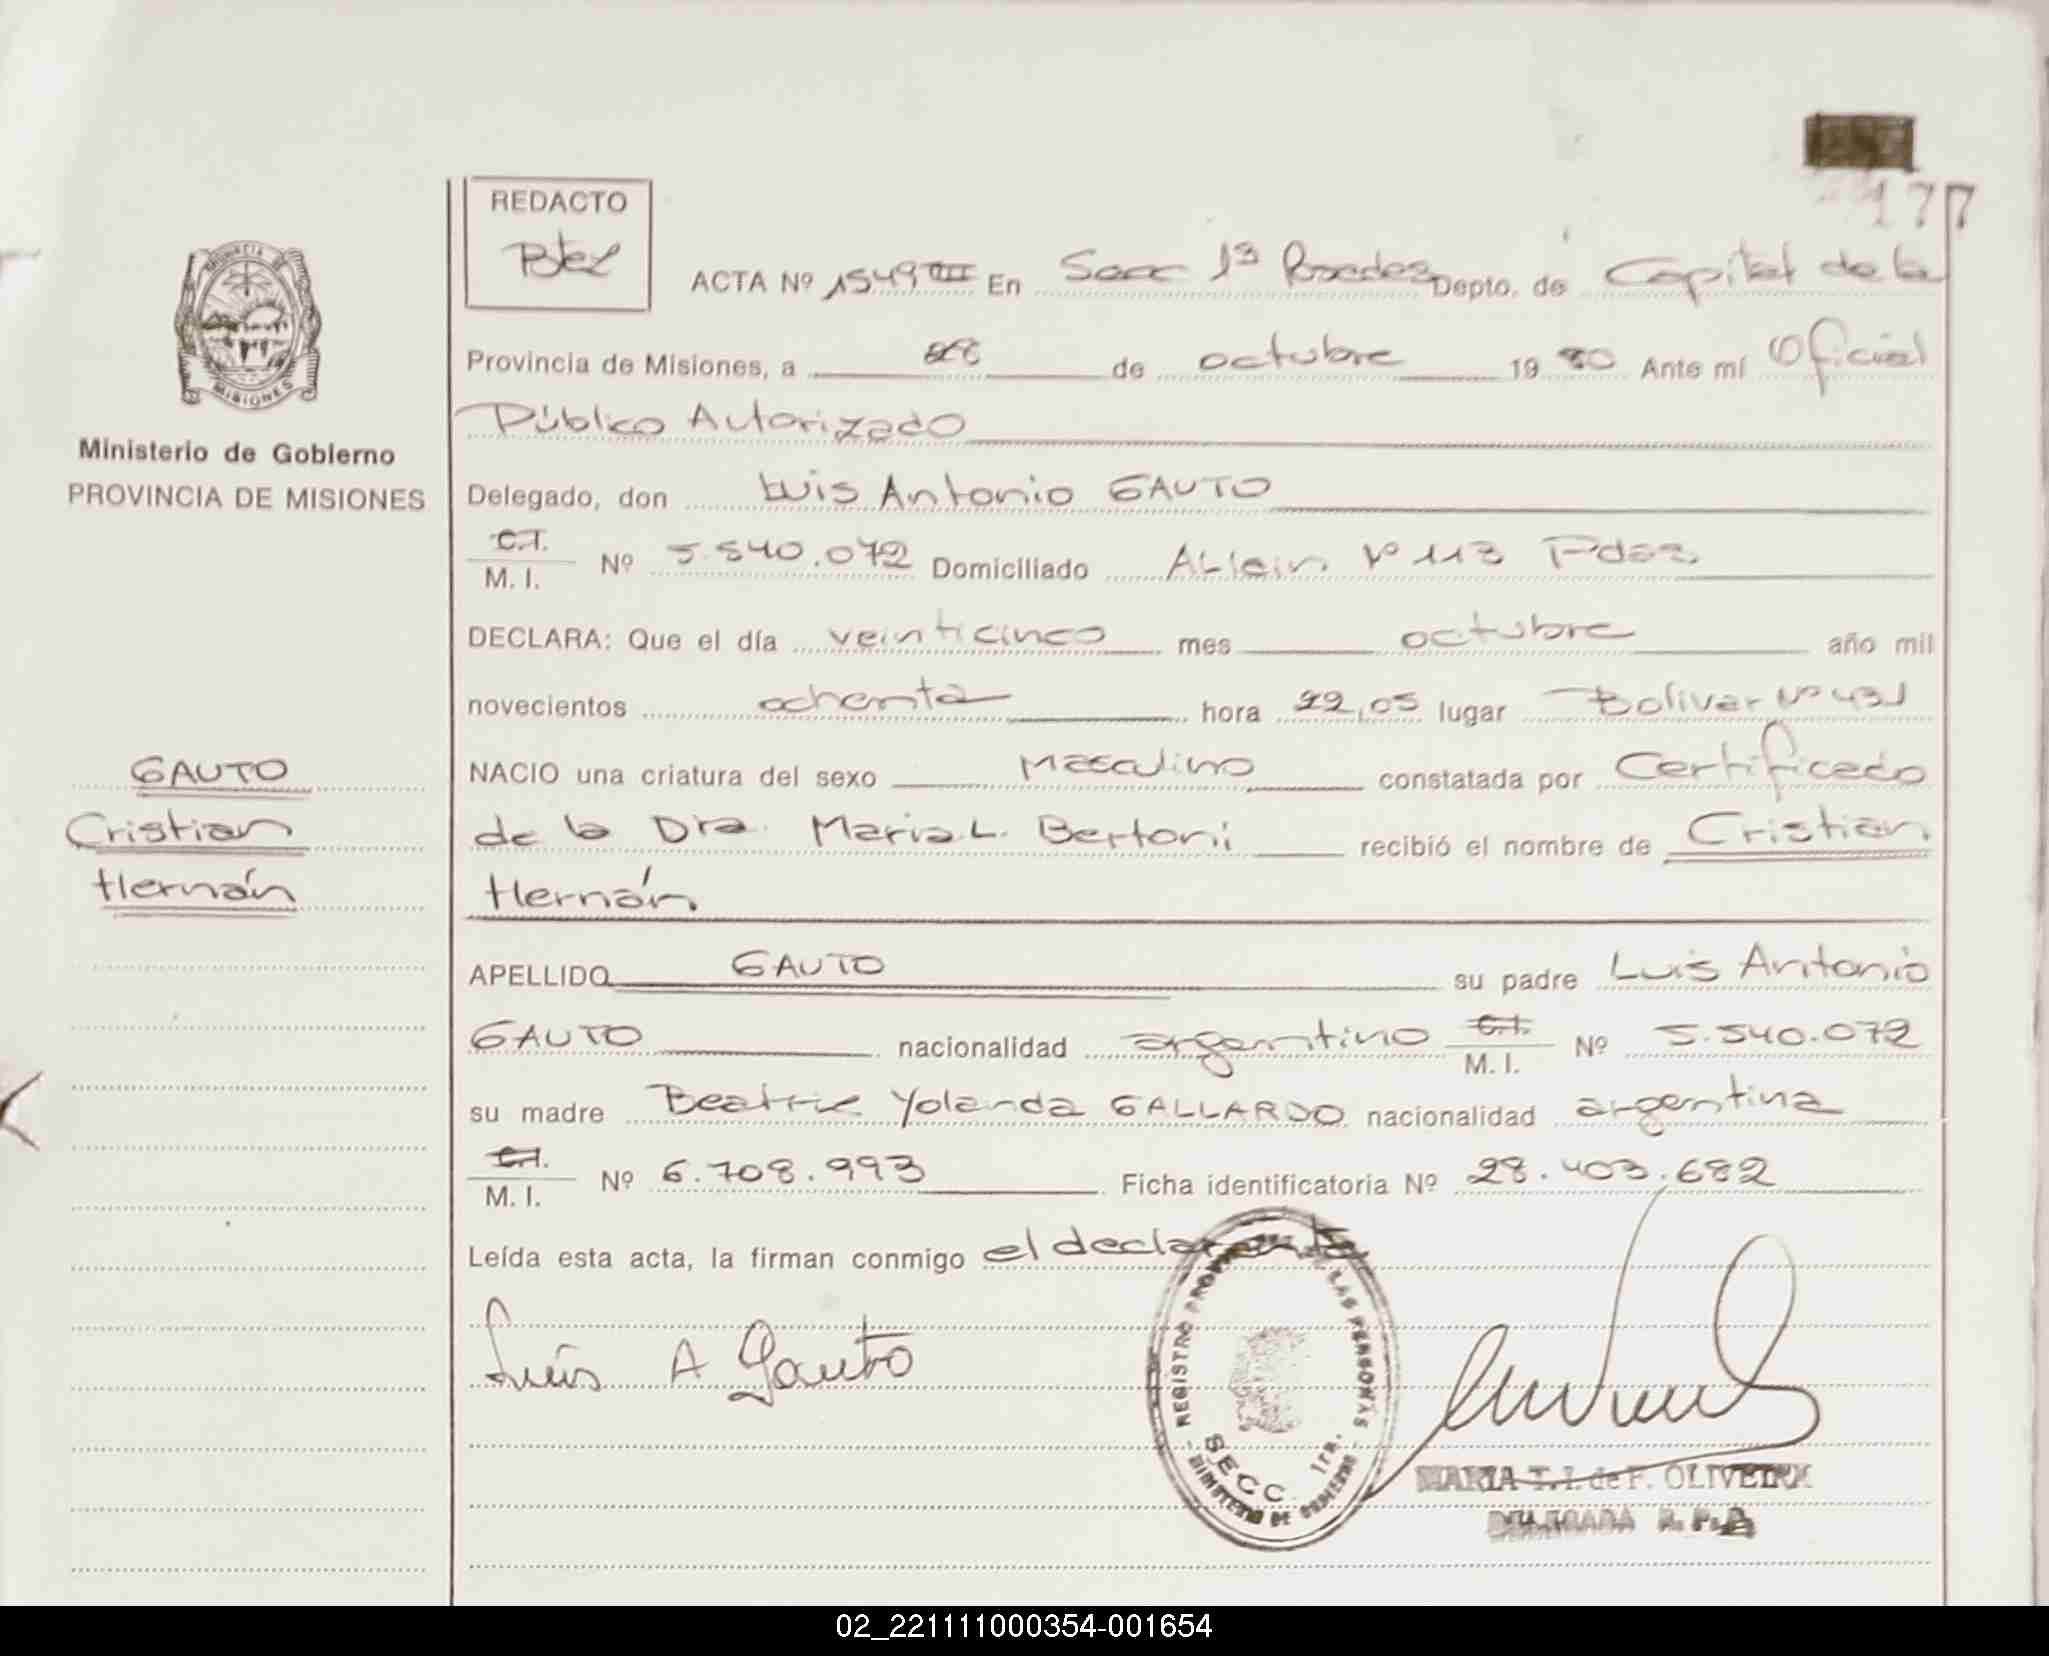 177
REDACTO
PROVINCIA DE
MISIONES
Ministerio de Gobierno
PROVINCIA DE MISIONES
ACTA Nº 1549 III En Secc 1ª Posadas Depto. de Capital de la
Provincia de Misiones, a 28 de octubre 19 80 Ante mí Oficial
Público Autorizado
Delegado, don Luis Antonio GAUTO
C.I.
M. I. Nº 5.540.072 Domiciliado Allain Nº 113 Pdas
DECLARA: Que el día veinticinco mes octubre año mil
novecientos ochenta hora 22,05 lugar Bolivar Nº 431
NACIO una criatura del sexo Masculino constatada por Certificado
de la Dra. Maria L. Bertoni recibió el nombre de Cristian
Hernán
APELLIDO GAUTO su padre Luis Antonio
GAUTO nacionalidad argentino C.I.
M. I. Nº 5.540.072
su madre Beatriz Yolanda GALLARDO nacionalidad argentina
C.I.
M. I. Nº 6.708.993 Ficha identificatoria Nº 28.403.682
Leída esta acta, la firman conmigo el declarante
Luis A Gauto
GAUTO
Cristian
Hernán
REGISTRO DE LAS PERSONAS
SECC 1ra.
MINISTERIO DE GOBIERNO
MARIA T. I. de F. OLIVEIRA
DELEGADA R. P. P.
02_221111000354-001654